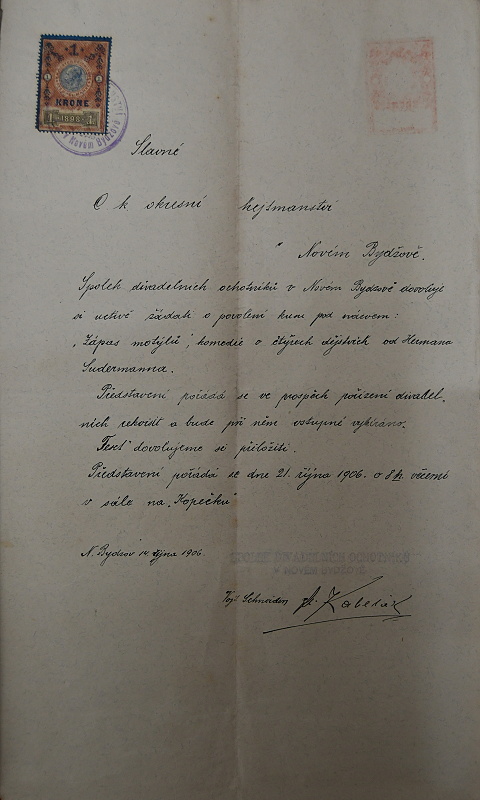 1
KRONE
1 1898 1
Slavné
C. k. okresní hejtmanství
v Novém Bydžově.
Spolek divadelních ochotníků v Novém Bydžově dovoluje
si uctivě žádati o povolení kusu pod názvem:
„Zápas motýlů", komedie o čtyřech dějstvích od Hermana
Sudermanna.
Představení pořádá se ve prospěch pořízení divadel.
ních rekvisit a bude při něm vstupné vybíráno.
Text dovolujeme si přiložiti.
Představení pořádá se dne 21. října 1906. o 8 h. večerní
v sále na „Kopečku"
N. Bydžov 14 října 1906.
Vojt Schneider